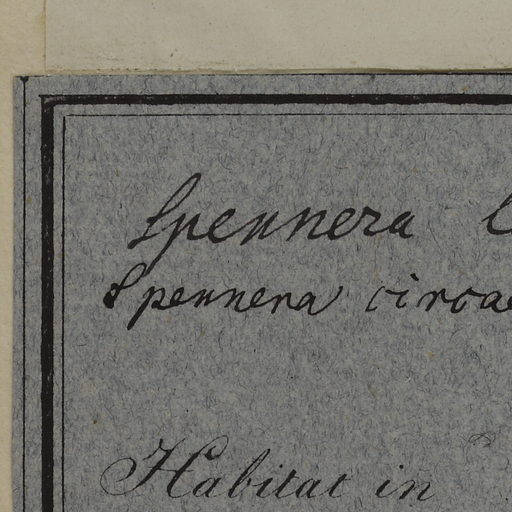 Spennera
Spennera circae
Habitat in